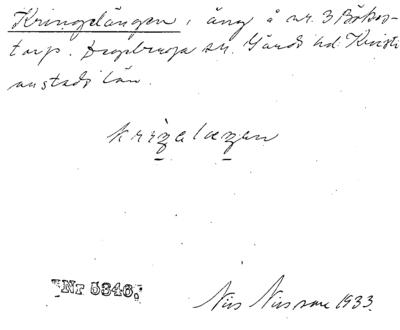 Kringelängen, äng å nr. 3 Bökes-
torp. Degeberga sn. Gärds hd. Kristi
anstads län.
kriŋalæŋen
Nr 5346.
Nils Nilsson 1933.